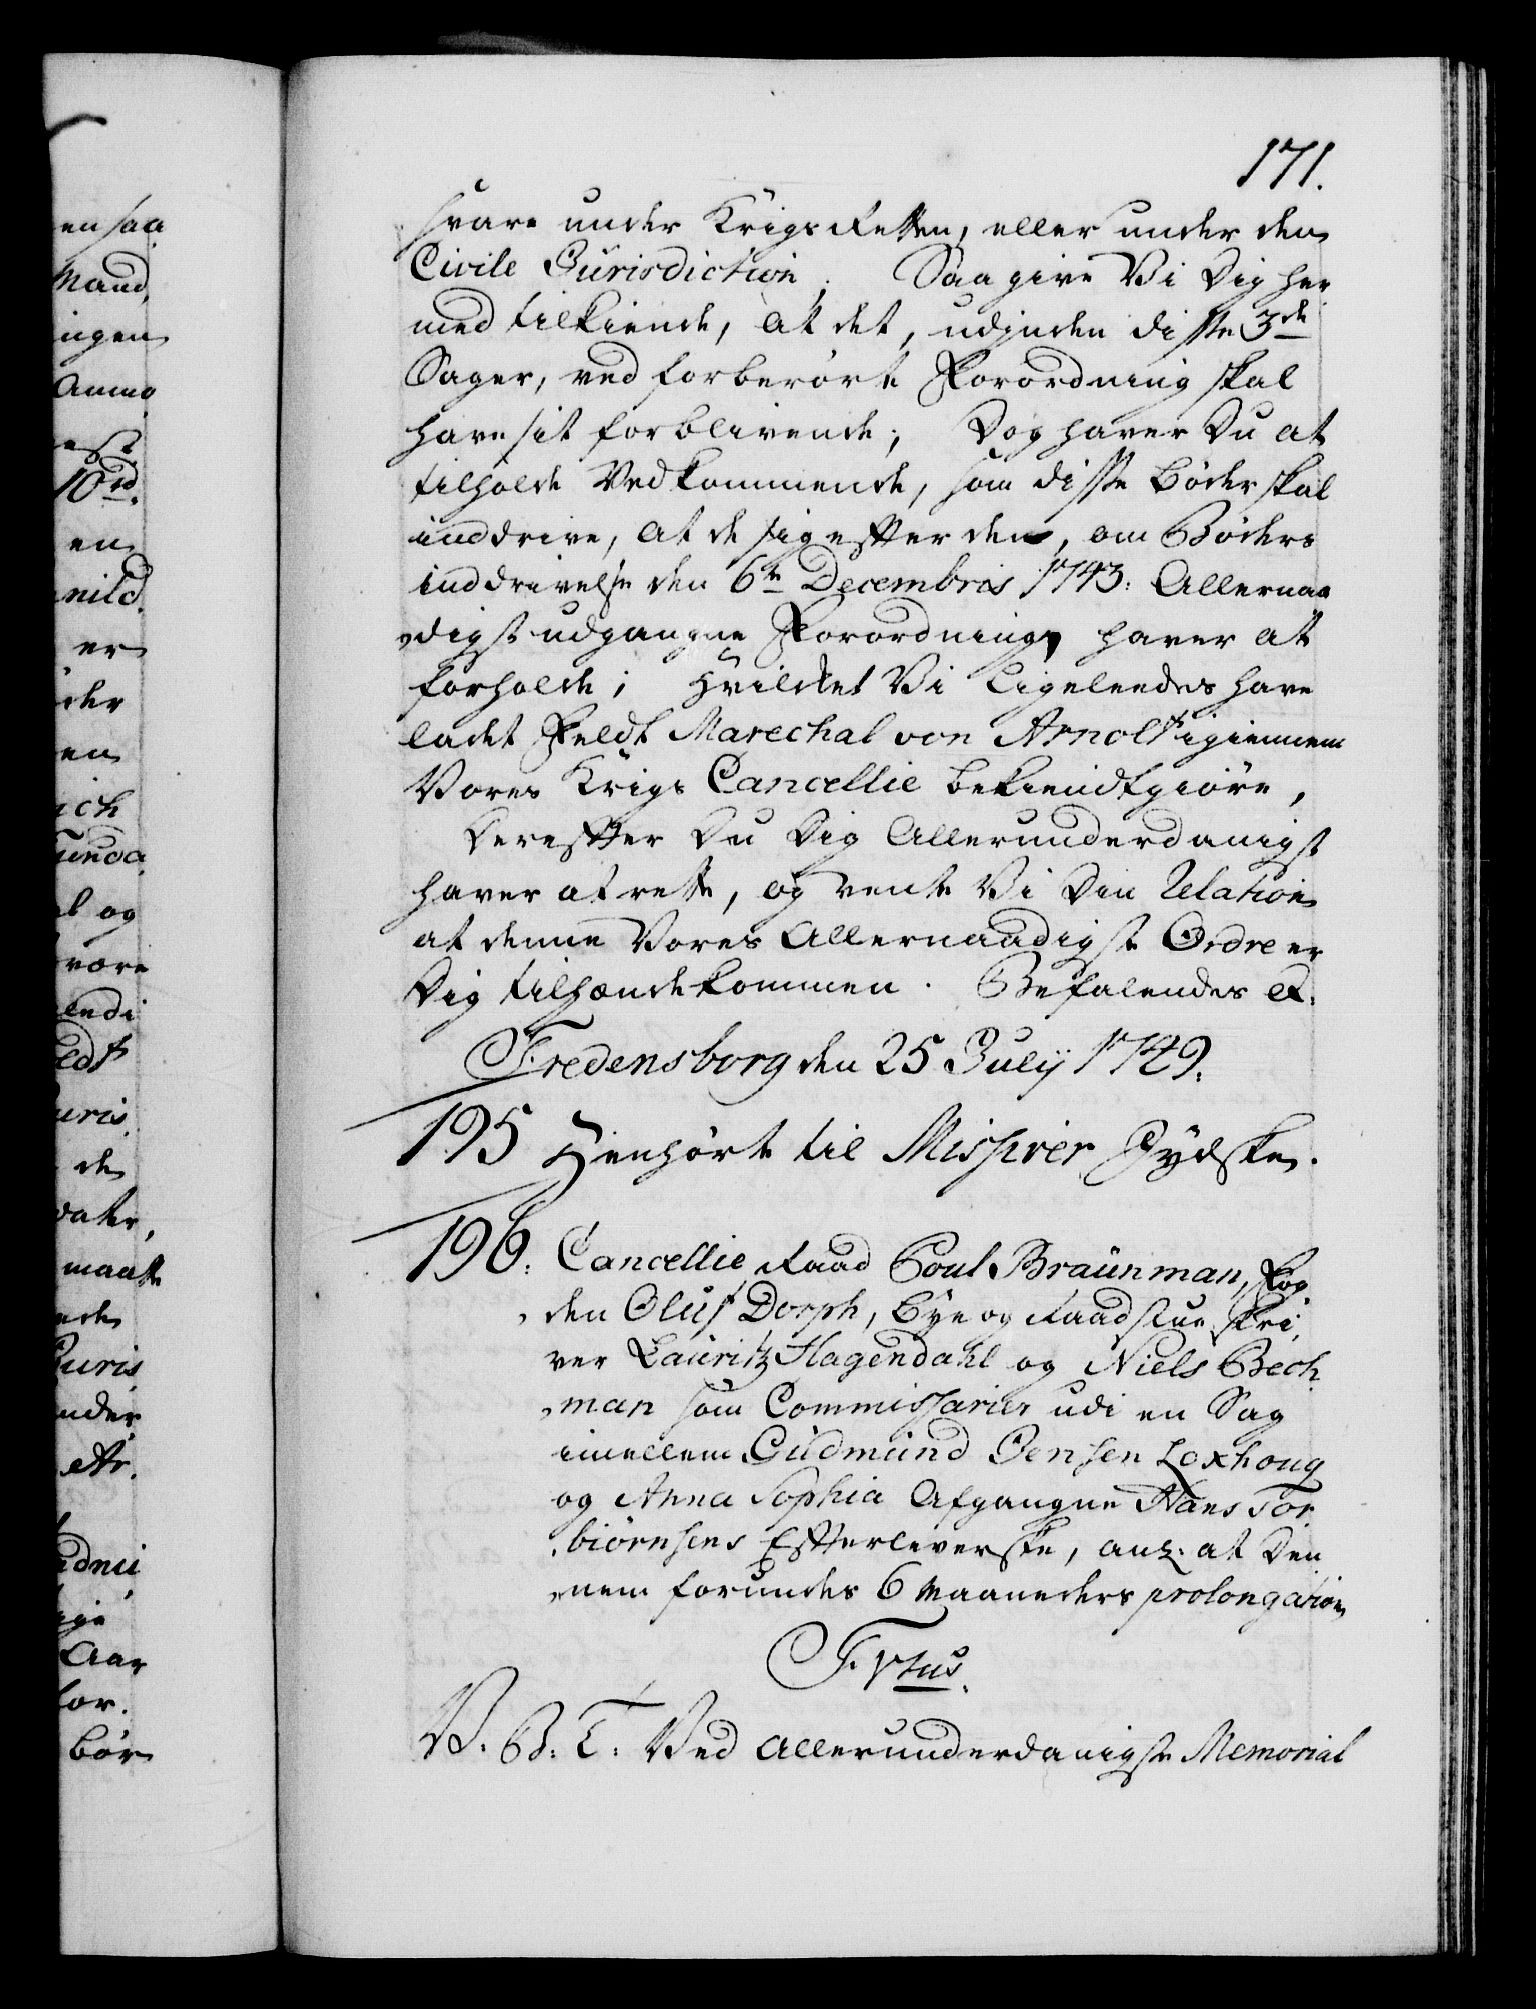 171.
svare under Krigs Retten, eller under den
Civile Jurisdiction. Saa give Vi Dig her
med tilkiende, at det, udj enden disse 3de
Sager, ved forberørte Forordning skal
have sit forblivende; Dog haver Du at
tilholde Vedkommende, som disse Bøder skal
inddrive, at de sig effter den, om Bøders
inddrivelse den 6te Decembris 1743. Allernaa
digst udgangne Forordning, haver at
forholde; Hvilcket Vi Ligeleedes have
ladet Feldt Marechal von Arnolt igiennem
Vores Krigs Cancellie bekiendtgiøre,
Dereffter Du Dig Allerunderdanigst
haver at rette, og vente Vi Din Relation
at denne Vores Allernaadigste Ordre er
Dig tilhænde kommen. Befalendes etc.
Fredensborg den 25 Julij 1749.
195 Henhørte til Missiver Jydske.
196. Cancellie Raad Poul Braünman, Fog
den Oluf Dorph, Bye og Raadstue Skri
ver Lauritz Hagendahl og Niels Bech
man som Commissarier udi en Sag
imellem Gudmund Jensen Loxhoug
og Anna Sophia Afgangne Hans Tor
biørnsens Effterleverske, anl. at Den
nem forundes 6 Maaneders prolongation
F. Vtus.
V. G. T. Ved Allerunderdanigste Memorial
en saa
Mand,
ingen
Anno
10rd.
en
mild.
er
der
en
ich
og
være
endi
uris
de
vater,
maatte
Juris
under
etc.
Aar
for.
bør